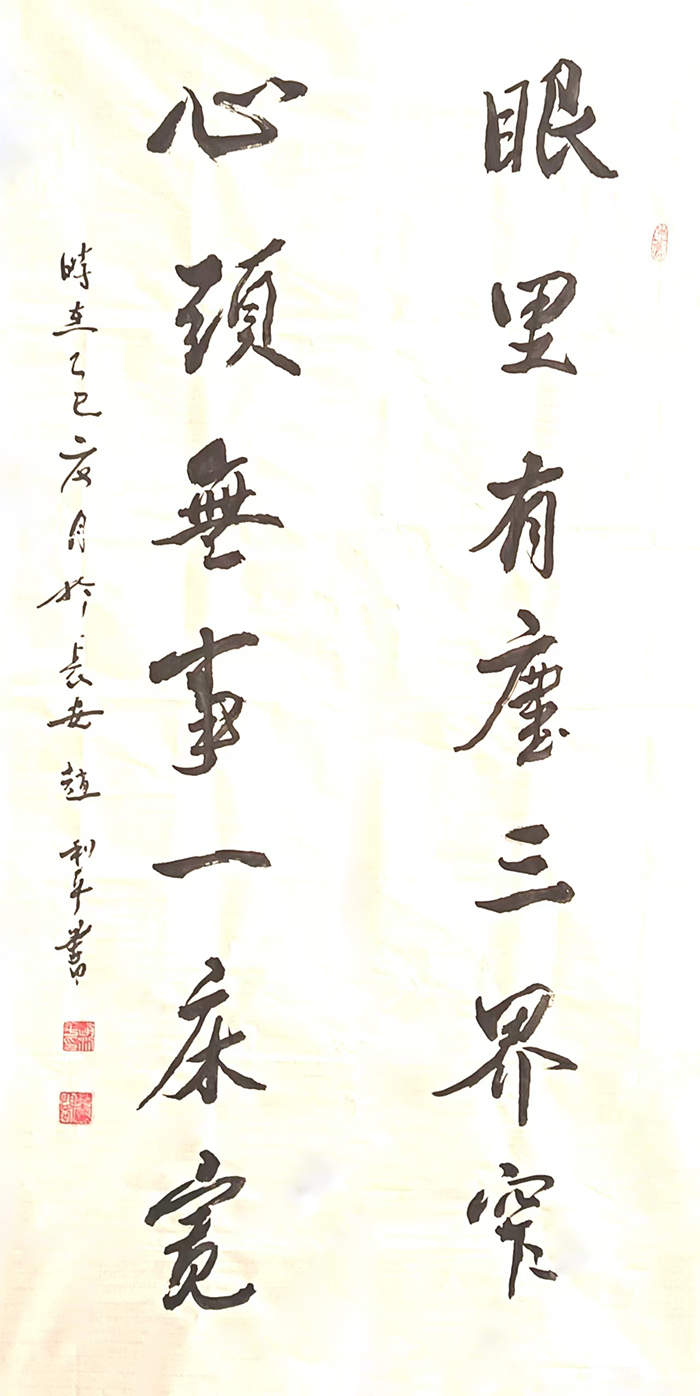 眼里有塵三界窄
心頭無事一床寬
時在乙巳六月於長安趙利平書